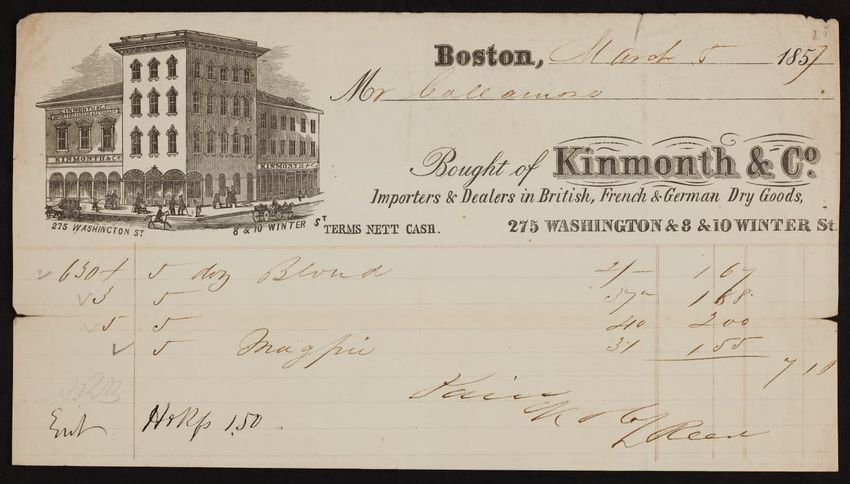 Boston, March 5 1857
Mr
Bought of Kinmonth & Co.
Importers & Dealers in British, French & German Dry Goods,
275 WASHINGTON & 8 & 10 WINTER St.
TERMS NETT CASH.
KINMONTH & Co
KINMONTH & Co
KINMONTH AND Co
275 WASHINGTON ST
8 & 10 WINTER ST
5 doz Blond 2/- 1 67
3 5 37½ 1 88
5 5 40 2 00
5 Magpie 31 1 55
7 10
K & Co
Ent 1.50